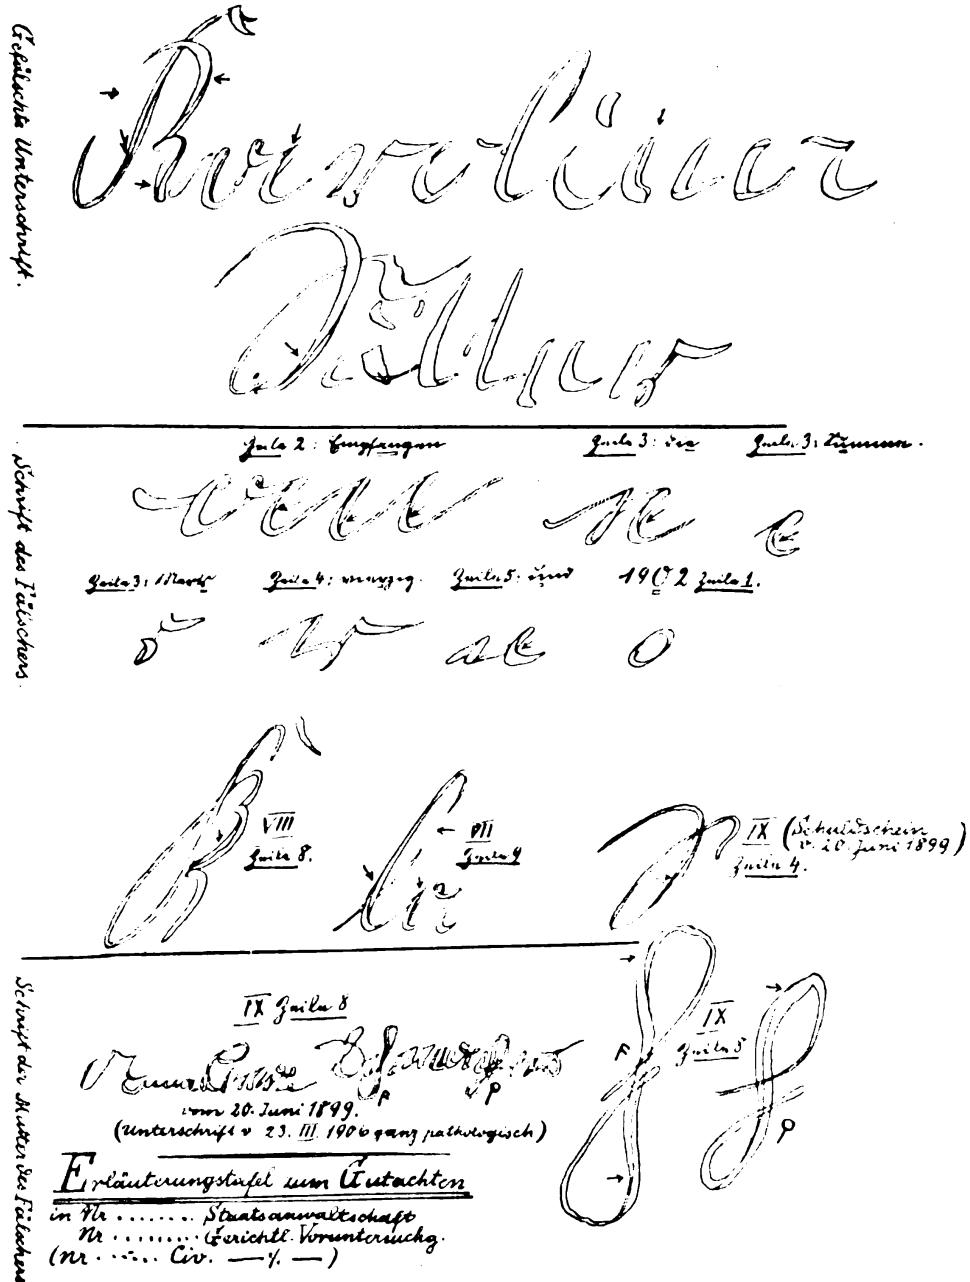 Gefälschte Unterschrift.
Karoline
Schrift des Fälschers.
Zeile 2: Empfangen
Zeile 3: die
Zeile 3: Summen.
Zeile 3: Mark
Zeile 4: vierzig.
Zeile 5: und
1902 Zeile 1.
VIII
Zeile 8.
VII
Zeile 9
IX (Schuldschein
v. 20. Juni 1899)
Zeile 4.
Schrift der Mutter des Fälschers
IX Zeile 8
IX
Zeile 5
F
F
vom 20. Juni 1899.
(Unterschrift v 23. III. 1906 ganz pathologisch)
Erläuterungstafel zum Gutachten
in Nr ........ Staatsanwaltschaft
Nr ......... Gerichtl. Voruntersuchg.
(Nr ...... Civ. — ⁒ — )